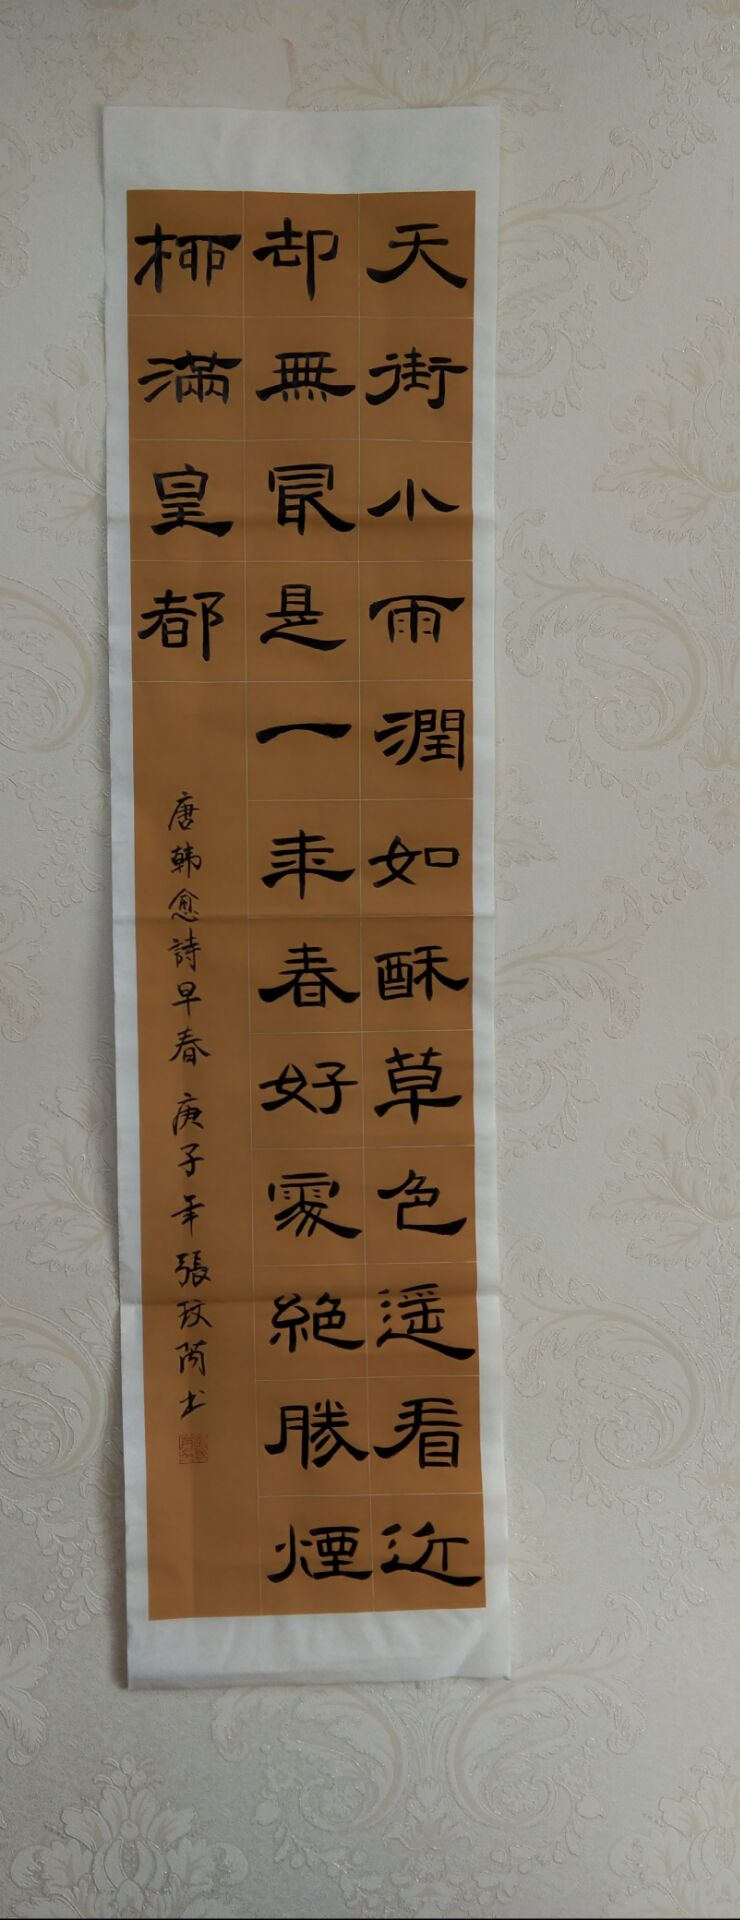 天街小雨潤如酥草色遥看近
却無冣是一年春好處絶勝煙
柳滿皇都
唐韩愈詩早春 庚子年張玟
书